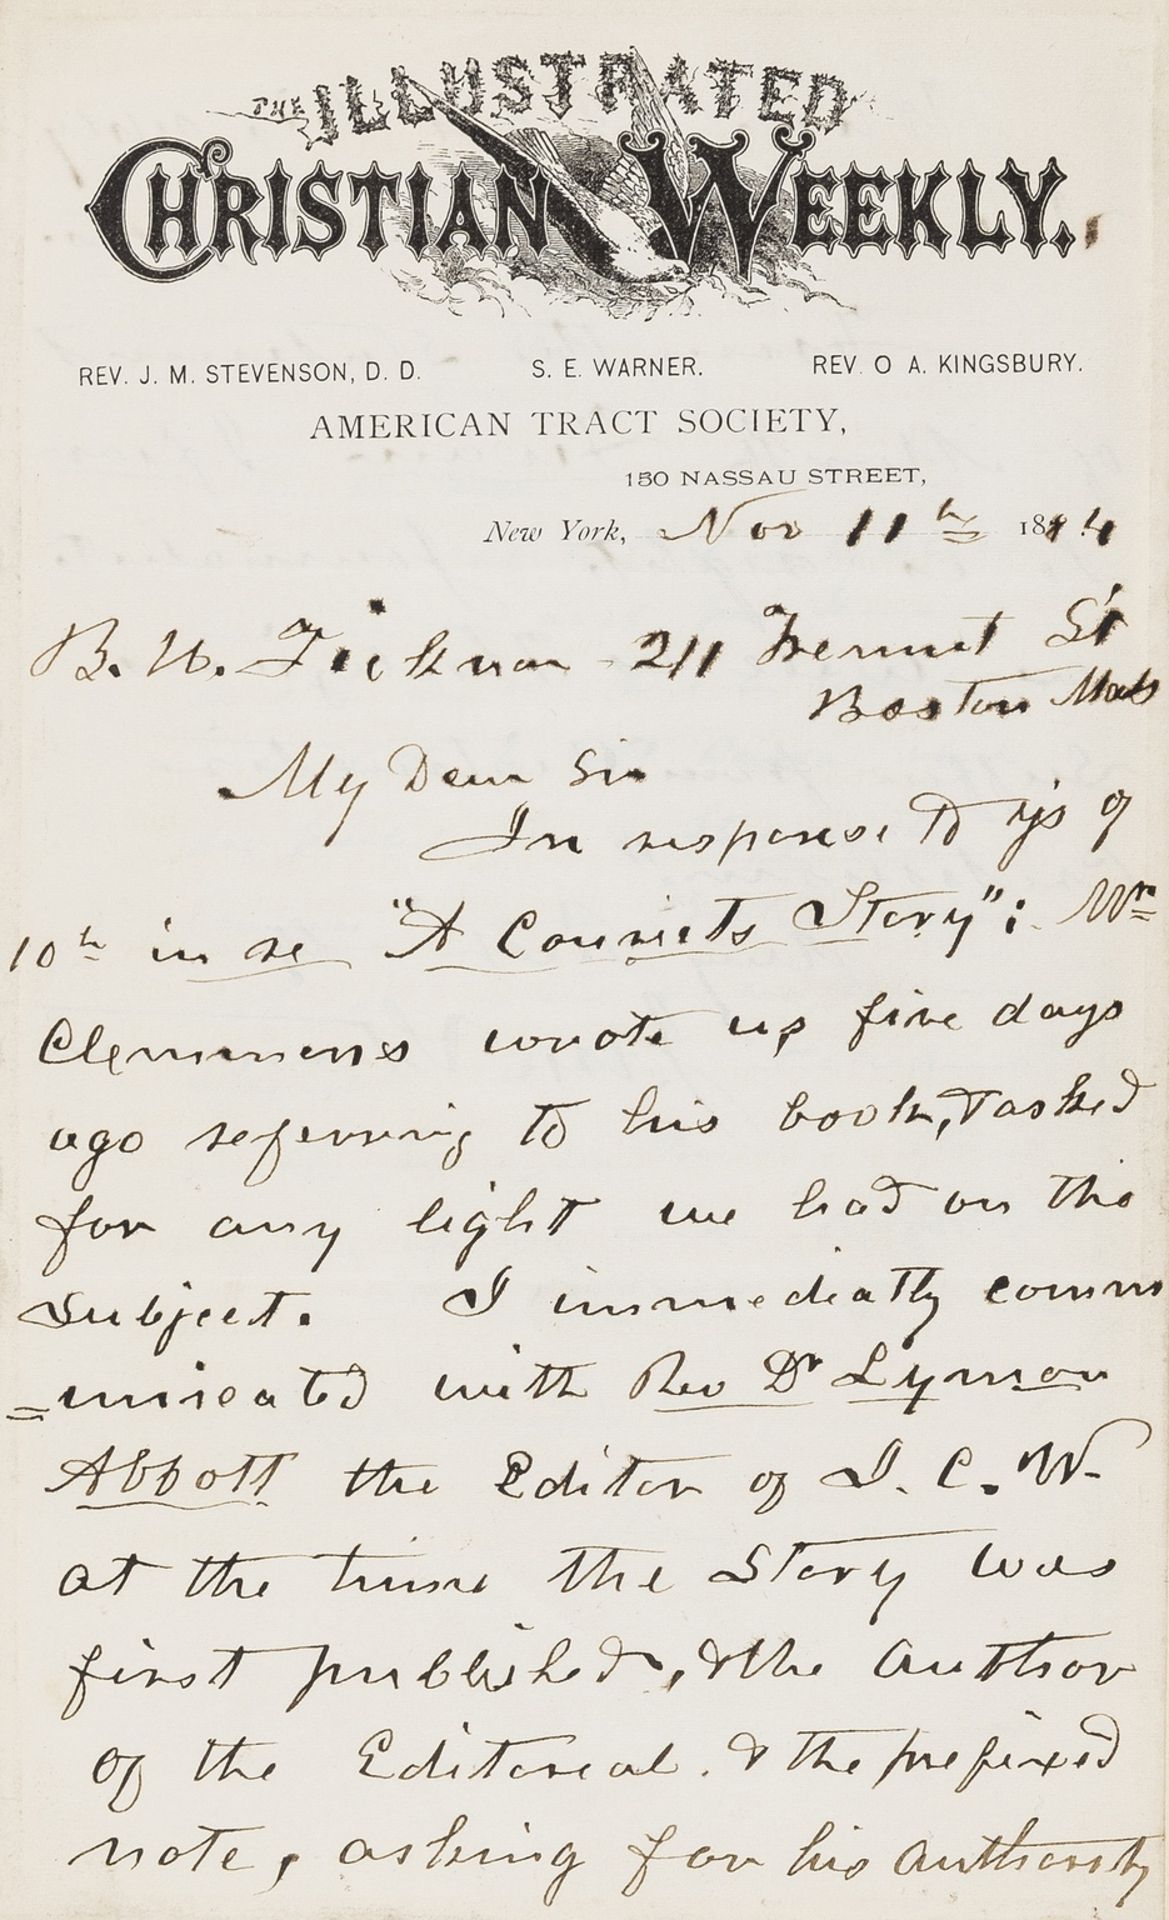 THE ILLUSTRATED
CHRISTIAN WEEKLY.
REV. J. M. STEVENSON, D. D. S. E. WARNER. REV. O A. KINGSBURY.
AMERICAN TRACT SOCIETY,
150 NASSAU STREET,
New York, Nov 11th 1884
B. H. Ticknor - 211 Tremont St
Boston Mass
My Dear Sir
In response to yrs of
10th in re "A Convicts Story": Mr
Clemmens wrote us five days
ago referring to his book, & asked
for any light we had on the
subject. I immediatly comm
=unicated with Rev Dr Lyman
Abbott the Editor of I. C. W.
at the time the Story was
first published, & the author
of the Editoreal. & the prefixed
note, asking for his authority